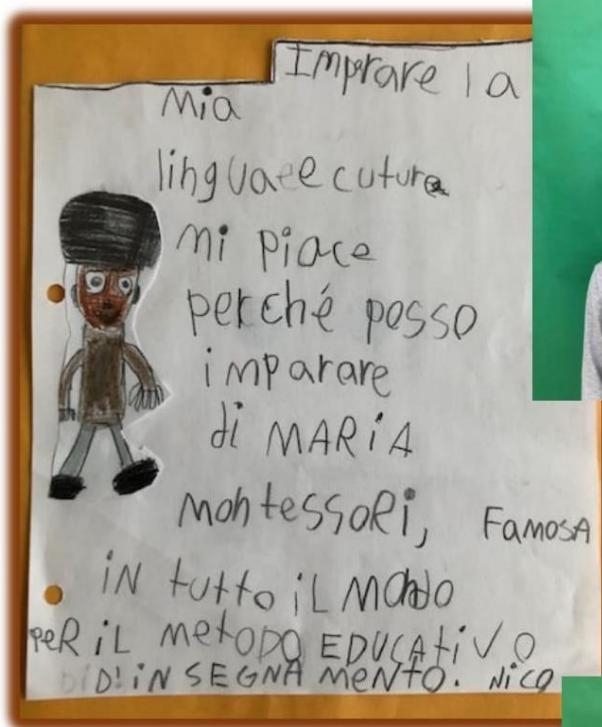 Imprare la
Mia
linguaee cuture
mi piace
perché posso
imparare
di MARiA
montessoRi, FamosA
iN tutto iL MoNdo
peR iL metoDo EDUCAtiVO
DiD'iNSEGNAmeNTO. NiCO